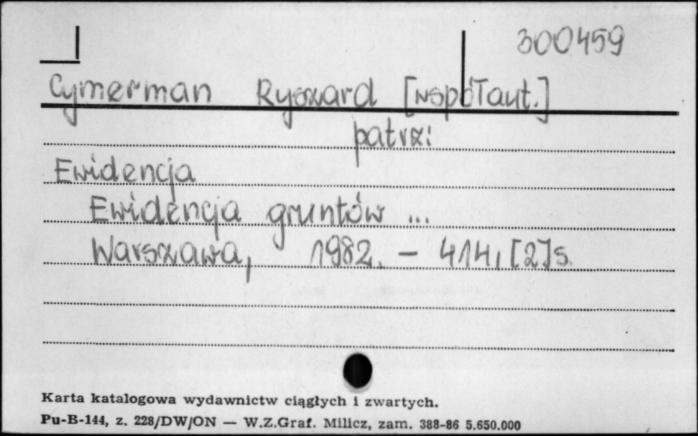 300459
Cymerman Ryszard [współaut.]
patrz:
Ewidencja
Ewidencja gruntów ...
Warszawa, 1982. - 414, [2] s.
Karta katalogowa wydawnictw ciągłych i zwartych.
Pu-B-144, z. 228/DW/ON — W.Z.Graf. Milicz, zam. 388-86 5.650.000